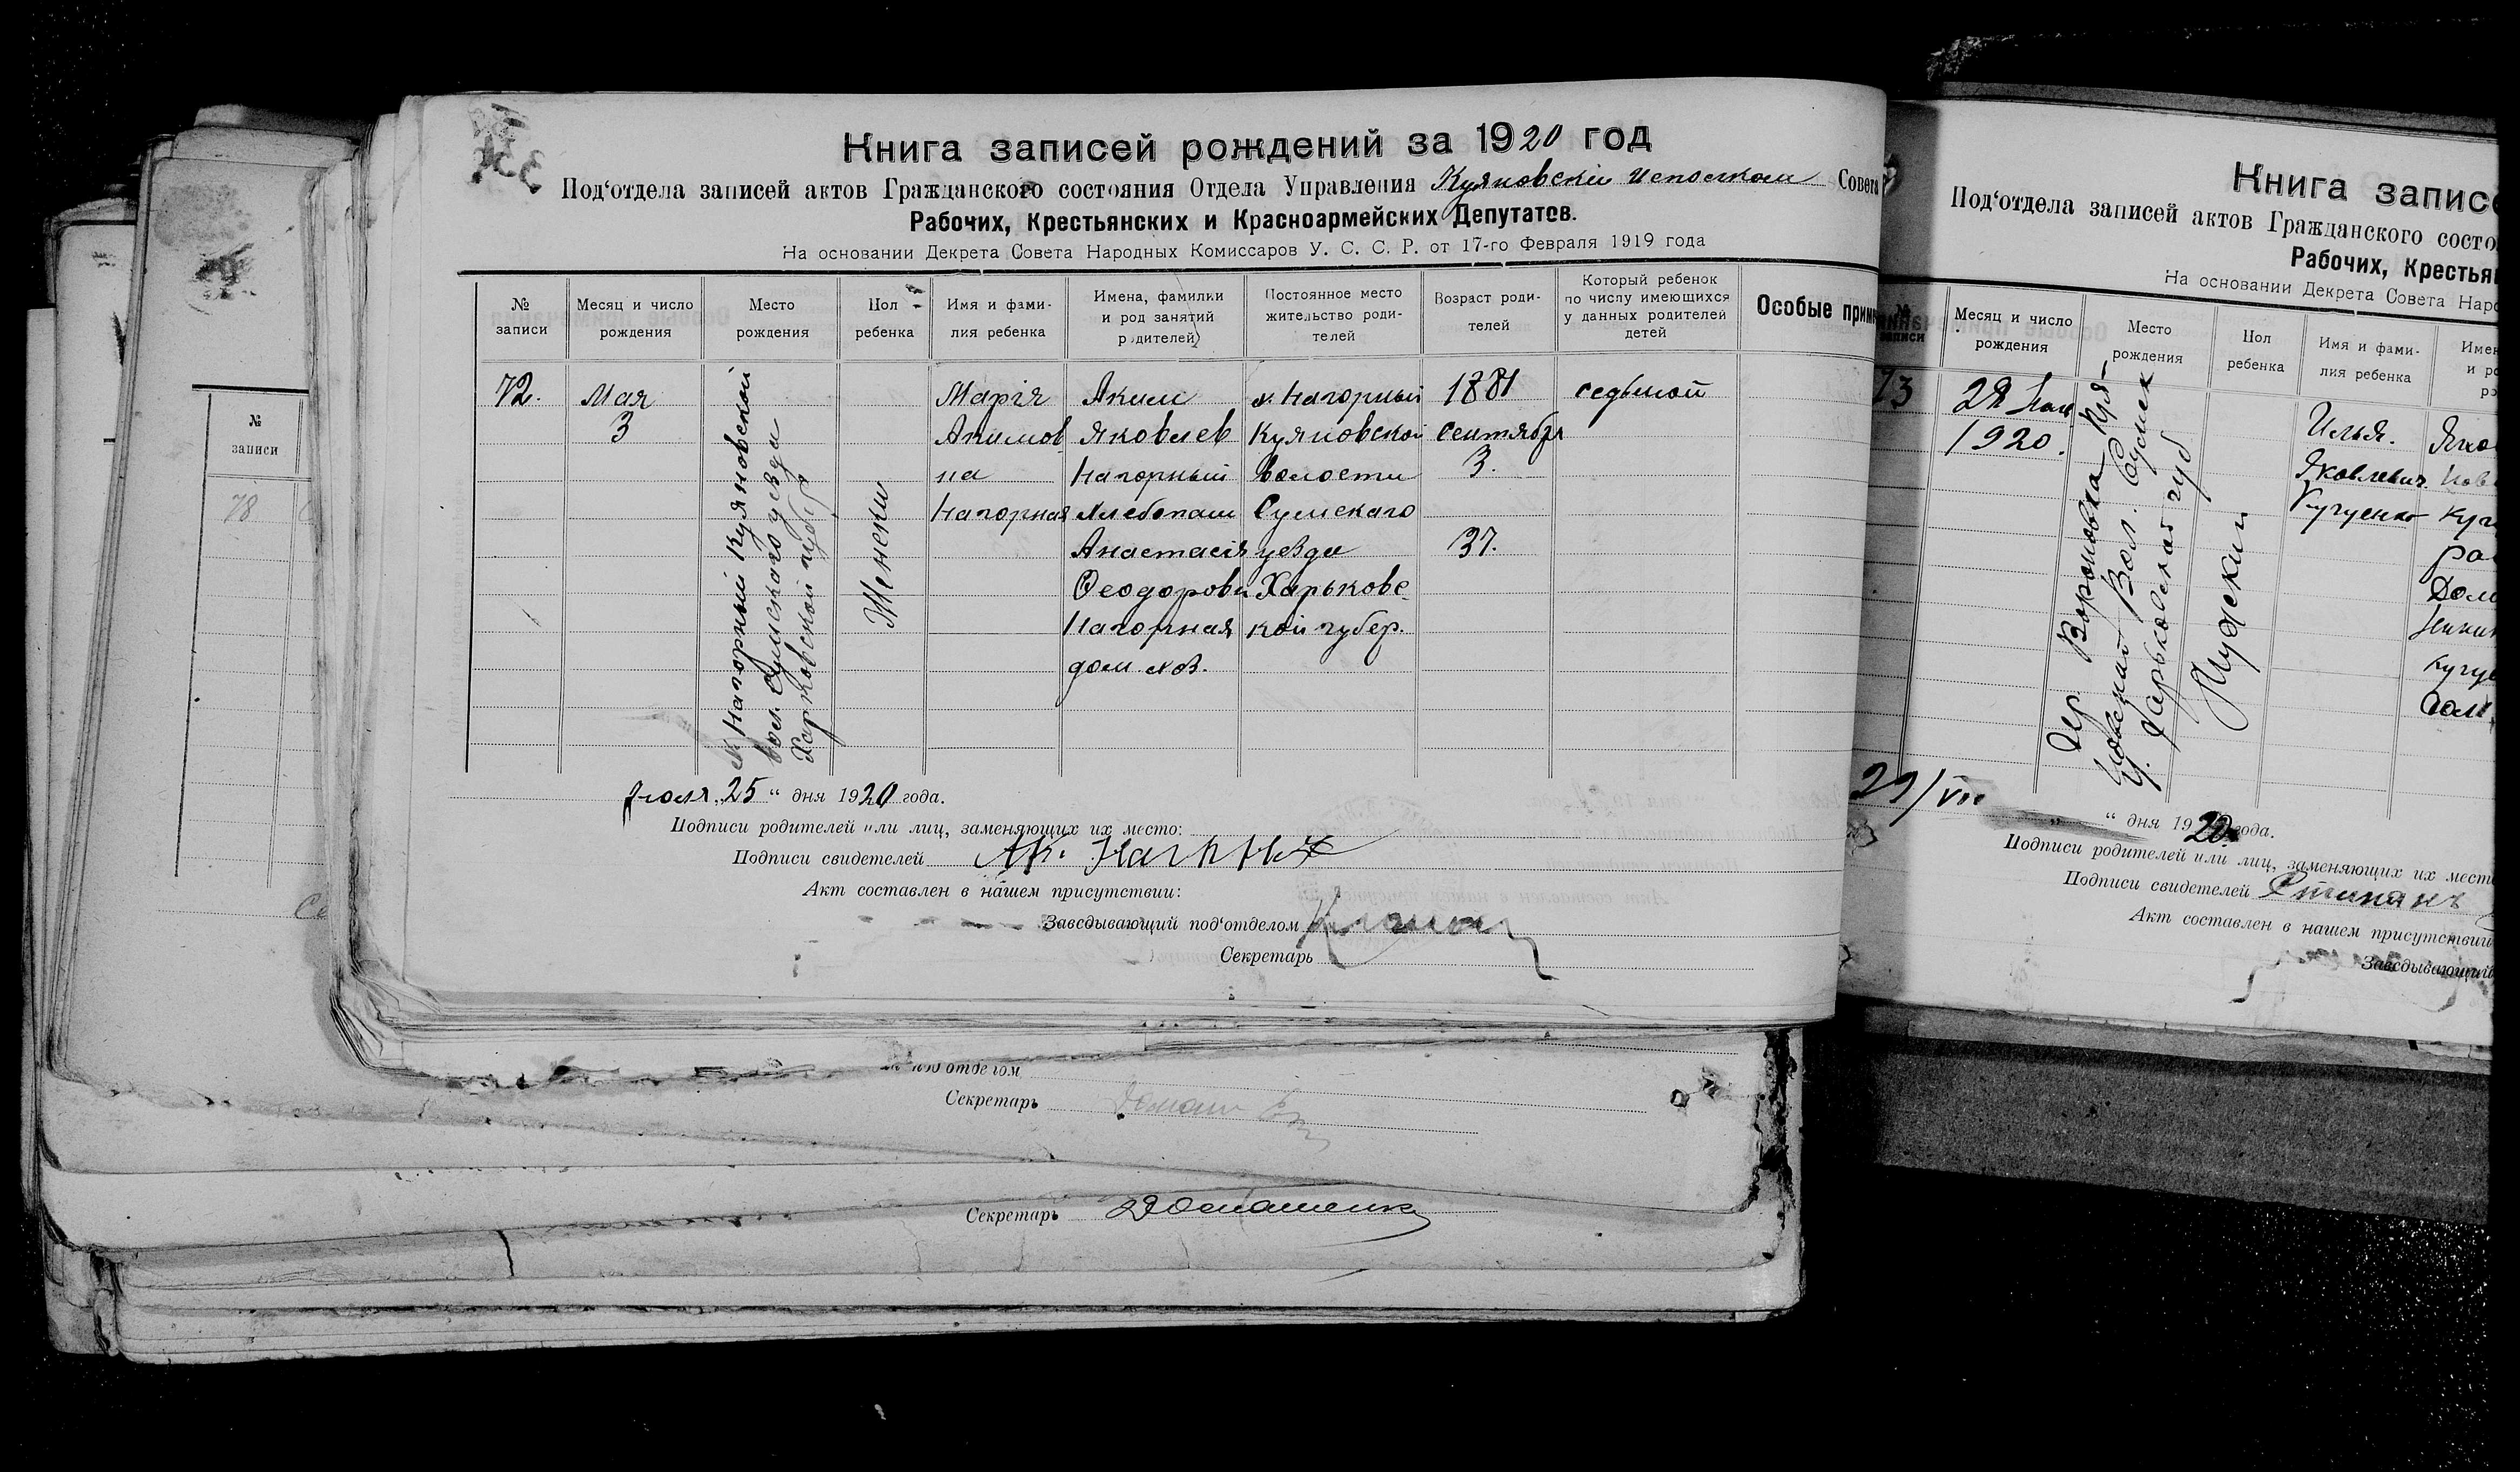 Книга записей рождений за 1920 год
Под‘отдела записей актов Гражданского состояния Отдела Управления Куяновскій Исполком Совета
Рабочих, Крестьянских и Красноармейских Депутатов.
На основании Декрета Совета Народных Комиссаров У. С. С. Р. от 17-го Февраля 1919 года
№ записи
Месяц и число рождения
Место рождения
Пол ребенка
Имя и фами- лия ребенка
Имена, фамилии и род занятий родителей)
Постоянное место жительство роди- телей
Возраст роди- телей
Который ребенок по числу имеющихся у данных родителей детей
Особые прим
72.
Мая
3
х Нагорный Куяновской
вол. Сумского уезда
Харьковской губер
Женски
Марія
Акимов
на
Нагорная
Аким
Яковлев
Нагорный
Хлебопаш
Анастасія
Феодоровн
Нагорная
дом. хоз.
х. Нагорный
Куяновской
волости
Сумскаго
уезда
Харьковс
кой губер.
1881
сентября
3.
37.
седьмой
Июля 25 “ дня 1920 года.
Подписи родителей или лиц, заменяющих их место:
Подписи свидетелей Ак.
Акт составлен в нашем присутствии:
Заведывающий под‘отделом
Секретарь
под‘отделом
Секретарь
Секретарь
№
записи
78
Книга записе
Под‘отдела записей актов Гражданского состо
Рабочих, Крестья
На основании Декрета Совета Наро
№ записи
Месяц и число рождения
Место рождения
Пол ребенка
Имя и фами- лия ребенка
Имен
и ро
73
28
1920.
Дер. Вороновка Куя-
новская Вол. Сумск
у. Харьковская губ
Мужский
Илья.
Яковлевич.
Кугуенко
29/VII
“ дня 1920 года.
Подписи родителей или лиц, заменяющих их место
Подписи свидетелей Степанъ
Акт составлен в нашем присутствии
Заведывающий